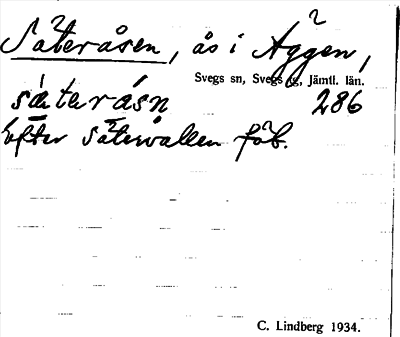 Säteråsen, ås i Äggen,
Svegs sn, Svegs tg, Jämtl. län.
säteråsn 286
Efter Sätervallen föb.
C. Lindberg 1934.